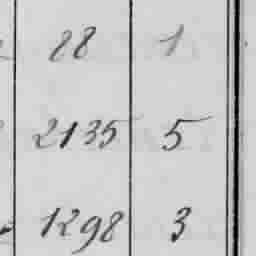 88 1
2135 5
1298 3